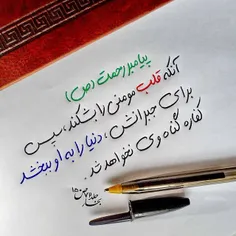 پیامبر رحمت (ص)
آنکه قلب مومنی را بشکند، سپس
برای جبرانش، دنیا را به او ببخشد
کفاره گناه وی نخواهد شد.